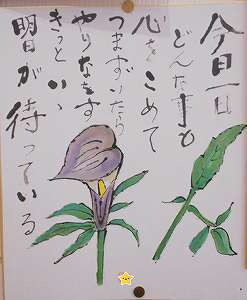 今日一日
どんな事も
心をこめて
つまずいたら
やりなおす
きっといゝ
明日が待っている